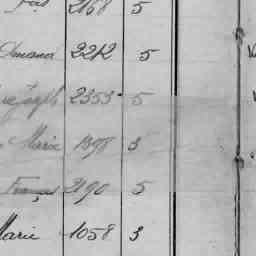 2168 5
Amand 2212 5
Joseph 2353 5
Marie 1398 3
Franç 2190 5
Marie 1058 3